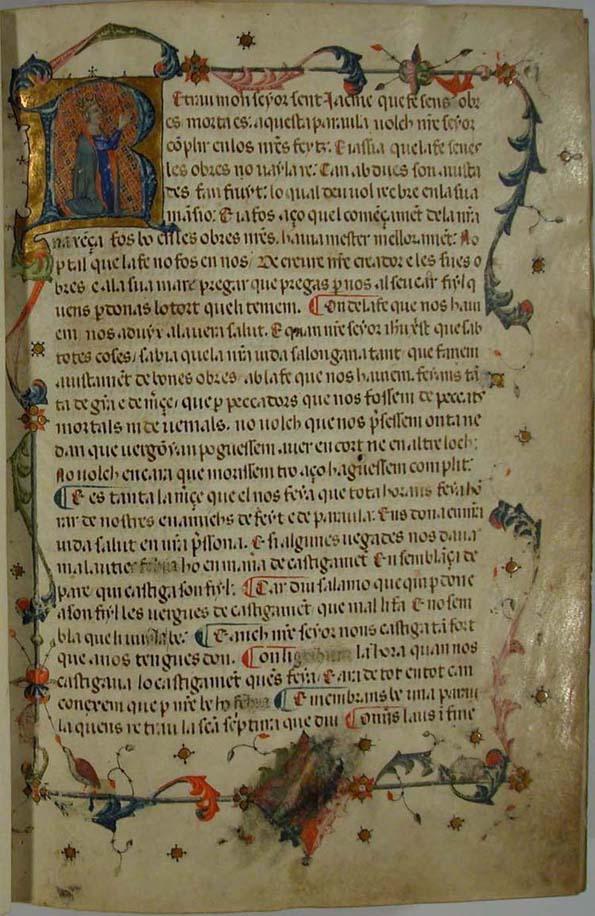 Retrau mon seyor sent Jacme que fe sens obr
es morta es: aquesta paraula volch nr̃e seyor
cõplir en los nr̃es feyts: E ia sia que la fe senes
les obres no vayla re: Can abdues son aiusta
des fan fruyt: lo qual deu vol reebre en la sua
mãsio: E ia fos aço quel començamẽt de la nr̃a
naxẽça fos bo en les obres nr̃es. hauia mester mellorament: No
p tal que la fe no fos en nos / De creure nr̃e creador e les sues o
bres e a la sua mare pregar que pregas p nos al seu car fiyl q
uens pdonas lo tort queli teniem. On de la fe que nos haui
em nos aduyx a la uera salut. E quan nr̃e seyor ihũ xp̃st que sab
totes coses / sabia que la nr̃a uida salongaria tant que fariem
aiustament de bones obres ab la fe que nos hauiem. feyans tã
ta de gr̃a e de mr̃çe / que p peccadors que nos fossem de peccats
mortals ni de uenials. no uolch que nos p̃sessem onta ne
dan que uergõyan poguessem auer en cort ne en altre loch:
No uolch encara que morissem tro aço haguessem complit:
E es tanta la mr̃çe que el nos feya que tota horans feya hõ
rar de nostres enamichs de feyt e de paraula: Ens dona en nr̃a
uida salut en nr̃a p̃ssona. E si algunes uegades nos daua
malauties ho en mana de castigament En semblãça de
pare qui castiga son fiyl: Car diu salamo que qui pdone
a son fiyl les uergues de castigament que mal li fa E no sem
bla que li uuyla be: E anch nr̃e seyor nons castiga tã fort
que a nos tengues don. la hora quan nos
castigaua lo castigament quẽs feya. E ara de tot en tot can
conexem que p nr̃e be ho E membrans be una parau
la quens retrau la scã scriptura que diu Omĩs laus i fine